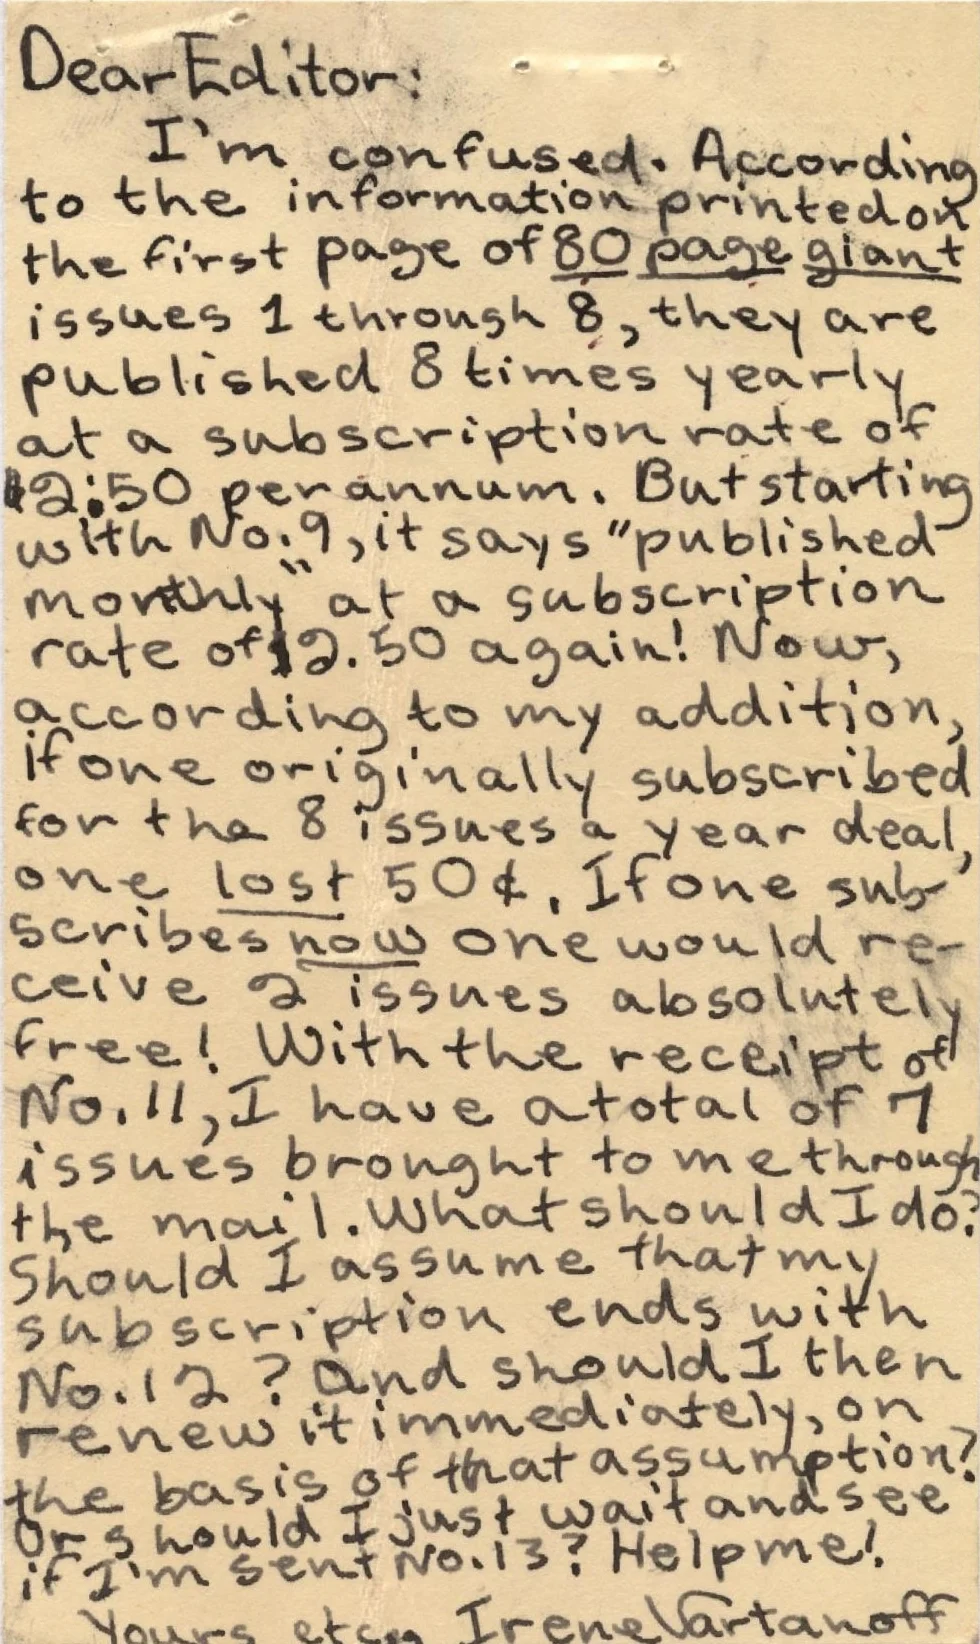 Dear Editor:
I'm confused. According
to the information printed on
the first page of 80 page giant
issues 1 through 8, they are
published 8 times yearly
at a subscription rate of
$2.50 per annum. But starting
with No. 9, it says "published
monthly" at a subscription
rate of $2.50 again! Now,
according to my addition,
if one originally subscribed
for the 8 issues a year deal,
one lost 50¢. If one sub-
scribes now one would re-
ceive 2 issues absolutely
free! With the receipt of
No. 11, I have a total of 7
issues brought to me through
the mail. What should I do?
Should I assume that my
subscription ends with
No. 12? And should I then
renew it immediately, on
the basis of that assumption?
Or should I just wait and see
if I'm sent No. 13? Help me!
Yours etc., Irene Vartanoff